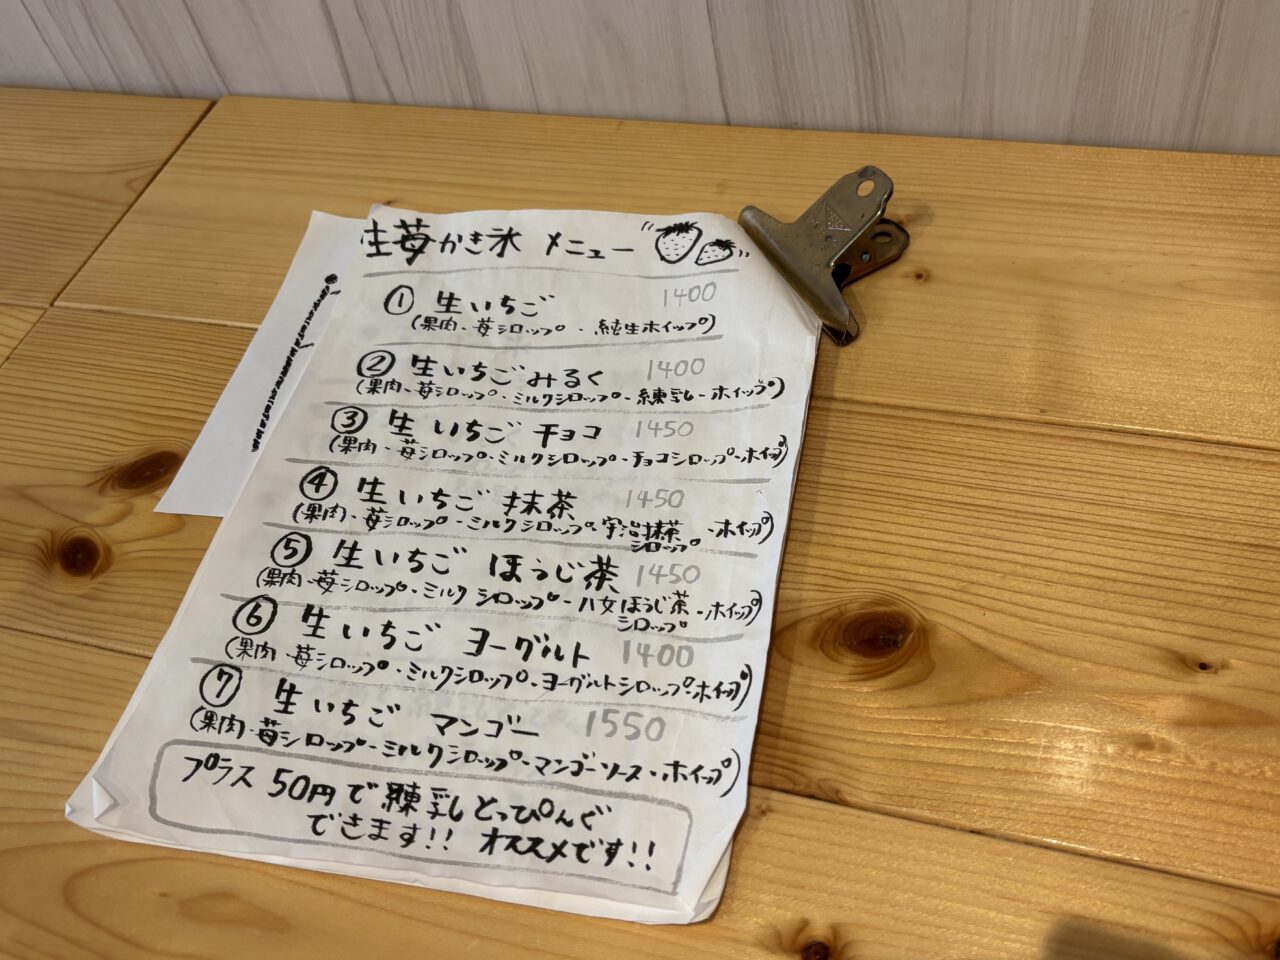 生苺かき氷 メニュー
① 生いちご 1400
(果肉・苺シロップ・純生ホイップ)
② 生いちごみるく 1400
(果肉・苺シロップ・ミルクシロップ・練乳・ホイップ)
③ 生いちごチョコ 1450
(果肉・苺シロップ・ミルクシロップ・チョコシロップ・ホイップ)
④ 生いちご 抹茶 1450
(果肉・苺シロップ・ミルクシロップ・宇治抹茶シロップ・ホイップ)
⑤ 生いちご ほうじ茶 1450
(果肉・苺シロップ・ミルクシロップ・八女ほうじ茶シロップ・ホイップ)
⑥ 生いちご ヨーグルト 1400
(果肉・苺シロップ・ミルクシロップ・ヨーグルトシロップ・ホイップ)
⑦ 生いちご マンゴー 1550
(果肉・苺シロップ・ミルクシロップ・マンゴーソース・ホイップ)
プラス 50円で練乳とっぴんぐ
できます!! オススメです!!